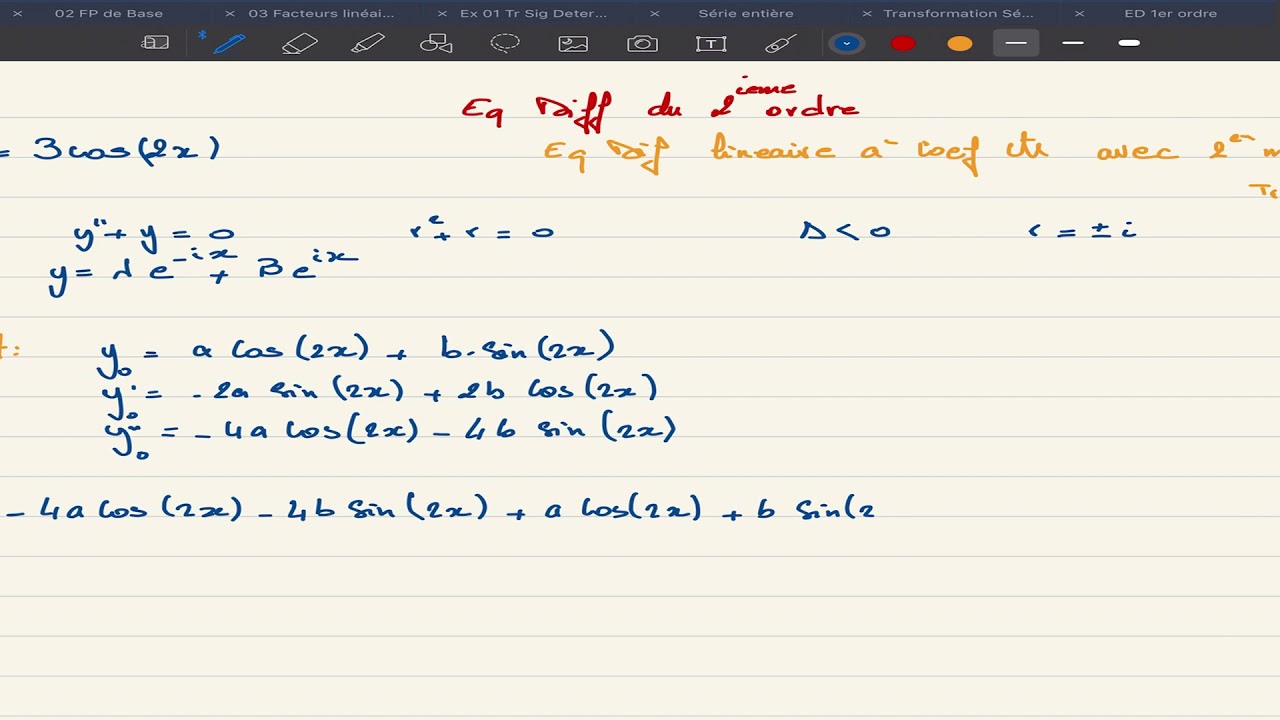 02 FP de Base 03 Facteurs linéai... Ex 01 Tr Sig Deter... Série entière Transformation Sé... ED 1er ordre
Eq Diff du 2ieme ordre
= 3cos(2x) Eq Dif lineaire a coef cte avec 2em m
y"+ y = 0 r²+ r = 0 Δ < 0 r = ± i
y = A e^-ix + B e^ix
t: y₀ = a cos(2x) + b.sin(2x)
y₀' = -2a sin(2x) + 2b cos(2x)
y₀" = -4a cos(2x) - 4b sin(2x)
- 4a cos(2x) - 4b sin(2x) + a cos(2x) + b sin(2